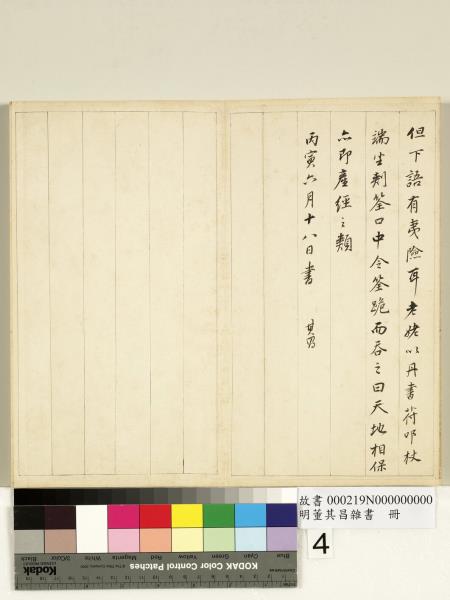 但下語有夷險耳老姥以丹書符叩杖
端坐刺筌口中令筌跪而吞之曰天地相保
亦即產經之類
丙寅六月十八日書
其昌
故書 000219N000000000
明董其昌雜書 冊
4
Kodak
KODAK Color Control Patches
Blue
Cyan
Green
Yellow
Red
Magenta
White
3/Color
Black